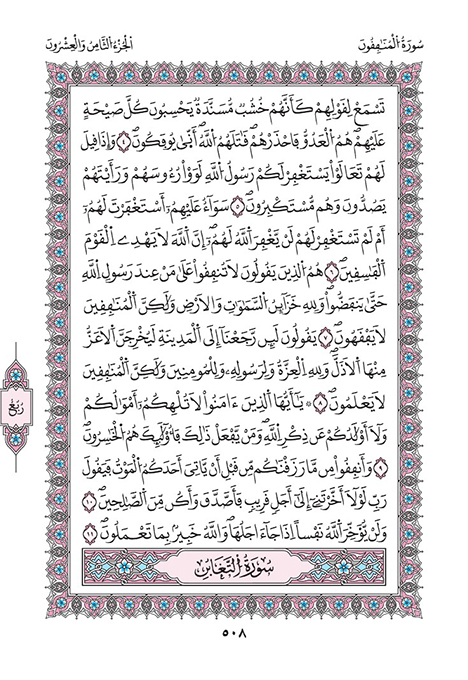 سُورَةُ الْمُنَافِقُونَ
الجُزْءُ الثَّامِنُ وَالْعِشْرُونَ
تَسْمَعْ لِقَوْلِهِمْ كَأَنَّهُمْ خُشُبٌ مُّسَنَّدَةٌ يَحْسِبُونَ كُلَّ صَيْحَةٍ
عَلَيْهِمْ هُمُ الْعَدُوُّ فَاحْذَرْهُمْ قَاتَلَهُمُ اللَّهُ أَنّٰى يُوفَكُونَ ٤ وَإِذَا قِيلَ
لَهُمْ تَعَالَوْاْ يَسْتَغْفِرْ لَكُمْ رَسُولُ اللَّهِ لَوَوْاْ رُءُوسَهُمْ وَرَأَيْتَهُمْ
يَصُدُّونَ وَهُم مُّسْتَكْبِرُونَ ٥ سَوَآءٌ عَلَيْهِمُ أَسْتَغْفَرْتَ لَهُمُ
أَمْ لَمْ تَسْتَغْفِرْ لَهُمْ لَنْ يَّغْفِرَ اللَّهُ لَهُمُ إِنَّ اللَّهَ لَا يَهْدِي الْقَوْمَ
الْفَٰسِقِينَ ٦ هُمُ الَّذِينَ يَقُولُونَ لَا تُنفِقُواْ عَلَىٰ مَنْ عِندَ رَسُولِ اللَّهِ
حَتَّىٰ يَنفَضُّواْ وَلِلهِ خَزَآئِنُ السَّمَٰوَٰتِ وَالْأَرْضِ وَلَٰكِنَّ الْمُنَٰفِقِينَ
لَا يَفْقَهُونَ ٧ يَقُولُونَ لَئِن رَّجَعْنَا إِلَى الْمَدِينَةِ لَيُخْرِجَنَّ الْأَعَزُّ
مِنْهَا الْأَذَلَّ وَلِلهِ الْعِزَّةُ وَلِرَسُولِهِ وَلِلْمُومِنِينَ وَلَٰكِنَّ الْمُنَٰفِقِينَ
لَا يَعْلَمُونَ ٨ يَٰأَيُّهَا الَّذِينَ ءَامَنُواْ لَا تُلْهِكُمُ أَمْوَٰلُكُمْ
وَلَا أَوْلَٰدُكُمْ عَن ذِكْرِ اللَّهِ وَمَنْ يَّفْعَلْ ذَٰلِكَ فَأُوْلَٰئِكَ هُمُ الْخَٰسِرُونَ
٩ وَأَنفِقُواْ مِن مَّا رَزَقْنَٰكُم مِّن قَبْلِ أَنْ يَّاتِيَ أَحَدَكُمُ الْمَوْتُ فَيَقُولَ
رَبِّ لَوْلَا أَخَّرْتَنِي إِلَىٰ أَجَلٍ قَرِيبٍ فَأَصَّدَّقَ وَأَكُن مِّنَ الصَّٰلِحِينَ ١٠
وَلَنْ يُّوَخِّرَ اللَّهُ نَفْساً إِذَا جَآءَ اجَلُهَا وَاللَّهُ خَبِيرٌ بِمَا تَعْمَلُونَ ١١
رُبُع
سُورَةُ التَّغَابُنِ
٥٠٨